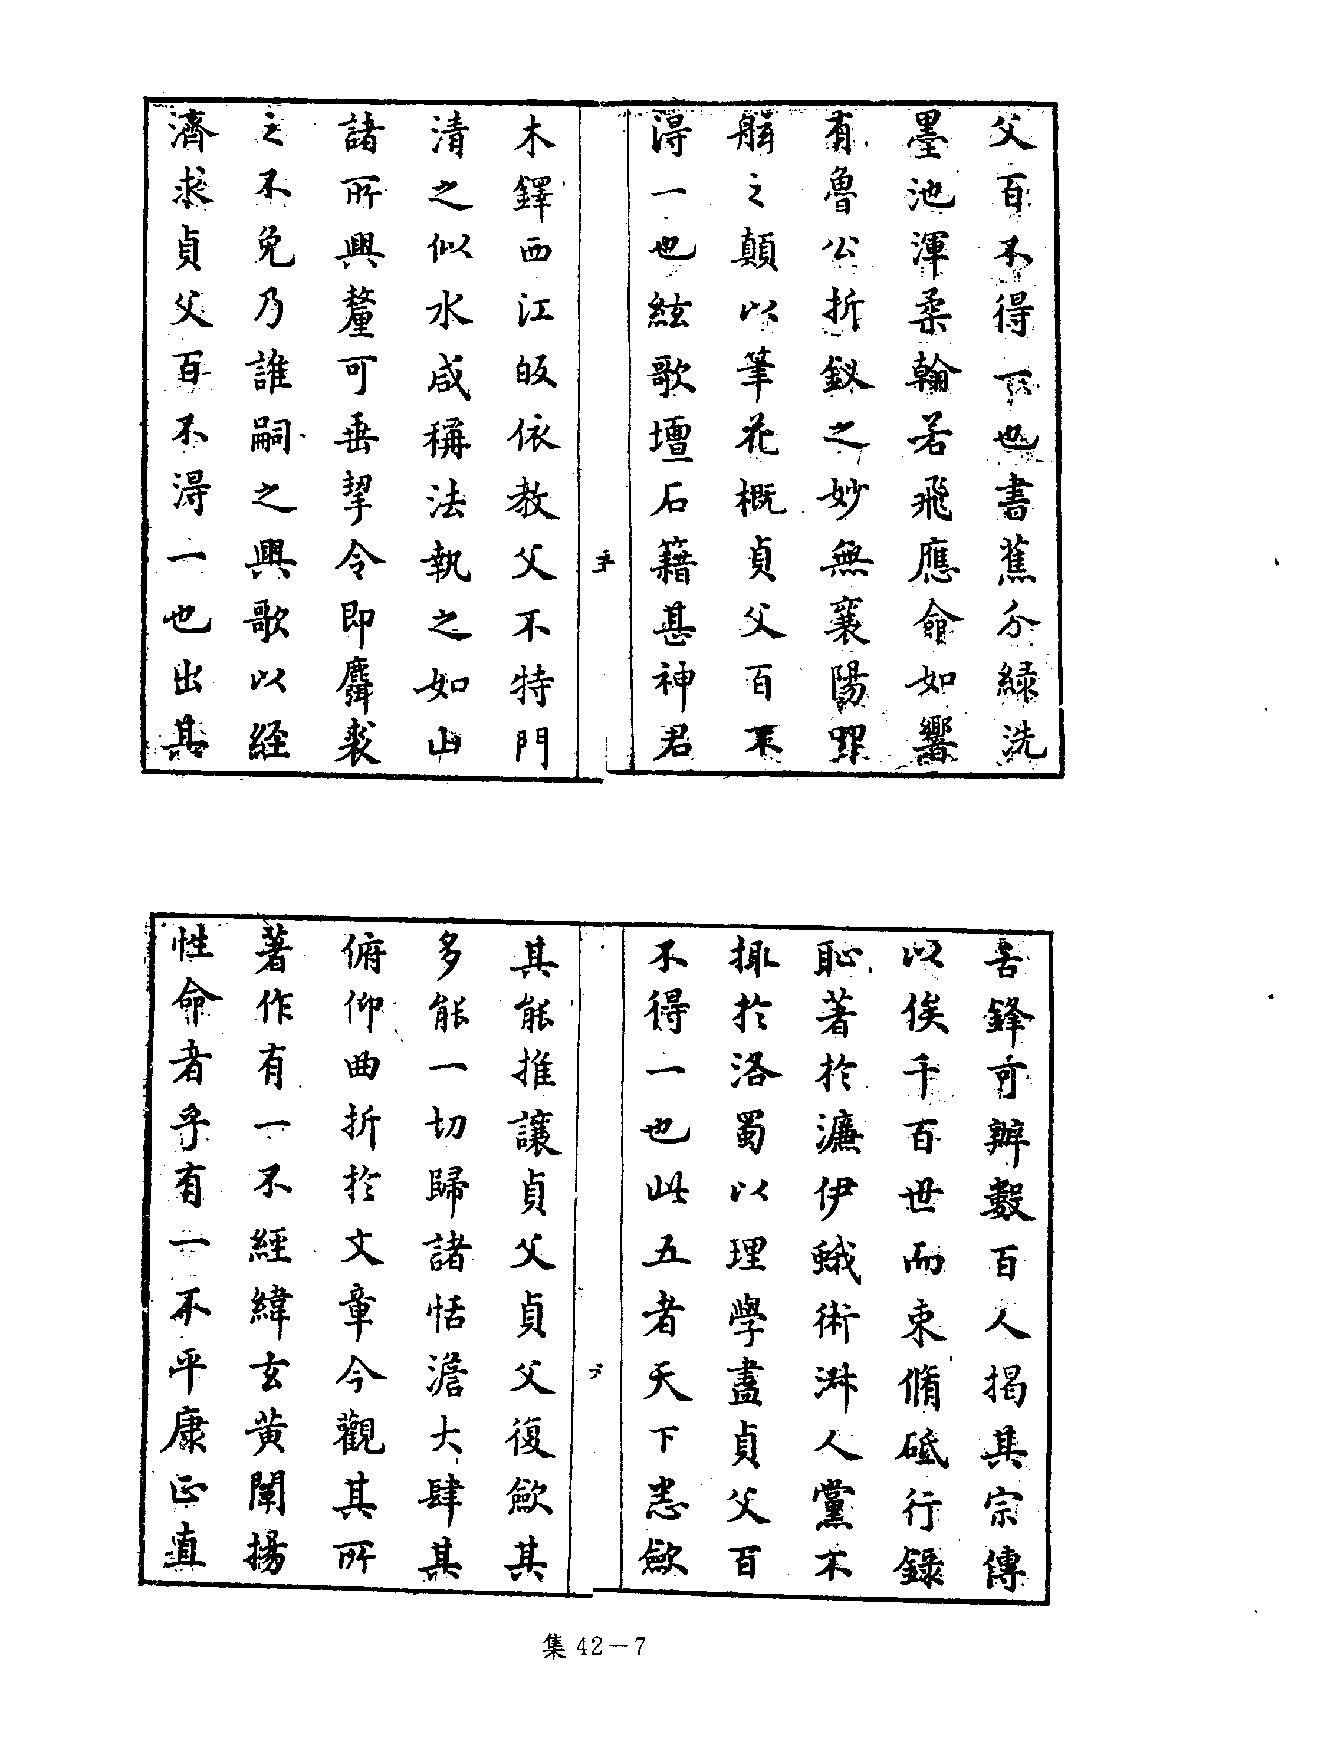 父百不得一也書蕉分綠洗
墨池渾柔翰若飛應命如響
有魯公折釵之妙無襄陽
之顛以筆花概貞父百不
得一也絃歌壇石籍甚神君
五
木鐸西江皈依教父不特門
清之似水咸稱法執之如山
諸所興釐可垂挈令即麛裘
之不免乃誰嗣之興歌以経
濟求貞父百不得一也出其
舌鋒可辦數百人揭其宗傳
以俟千百世而束脩砥行錄
恥著於濂伊蛾術淋人黨不
掫於洛蜀以理學盡貞父百
不得一也此五者天下悉歛
六
其能推讓貞父貞父復歛其
多能一切歸諸恬澹大肆其
俯仰曲折於文章今觀其所
著作有一不經緯玄黃闡揚
性命者乎有一不平康正直
集 42－7